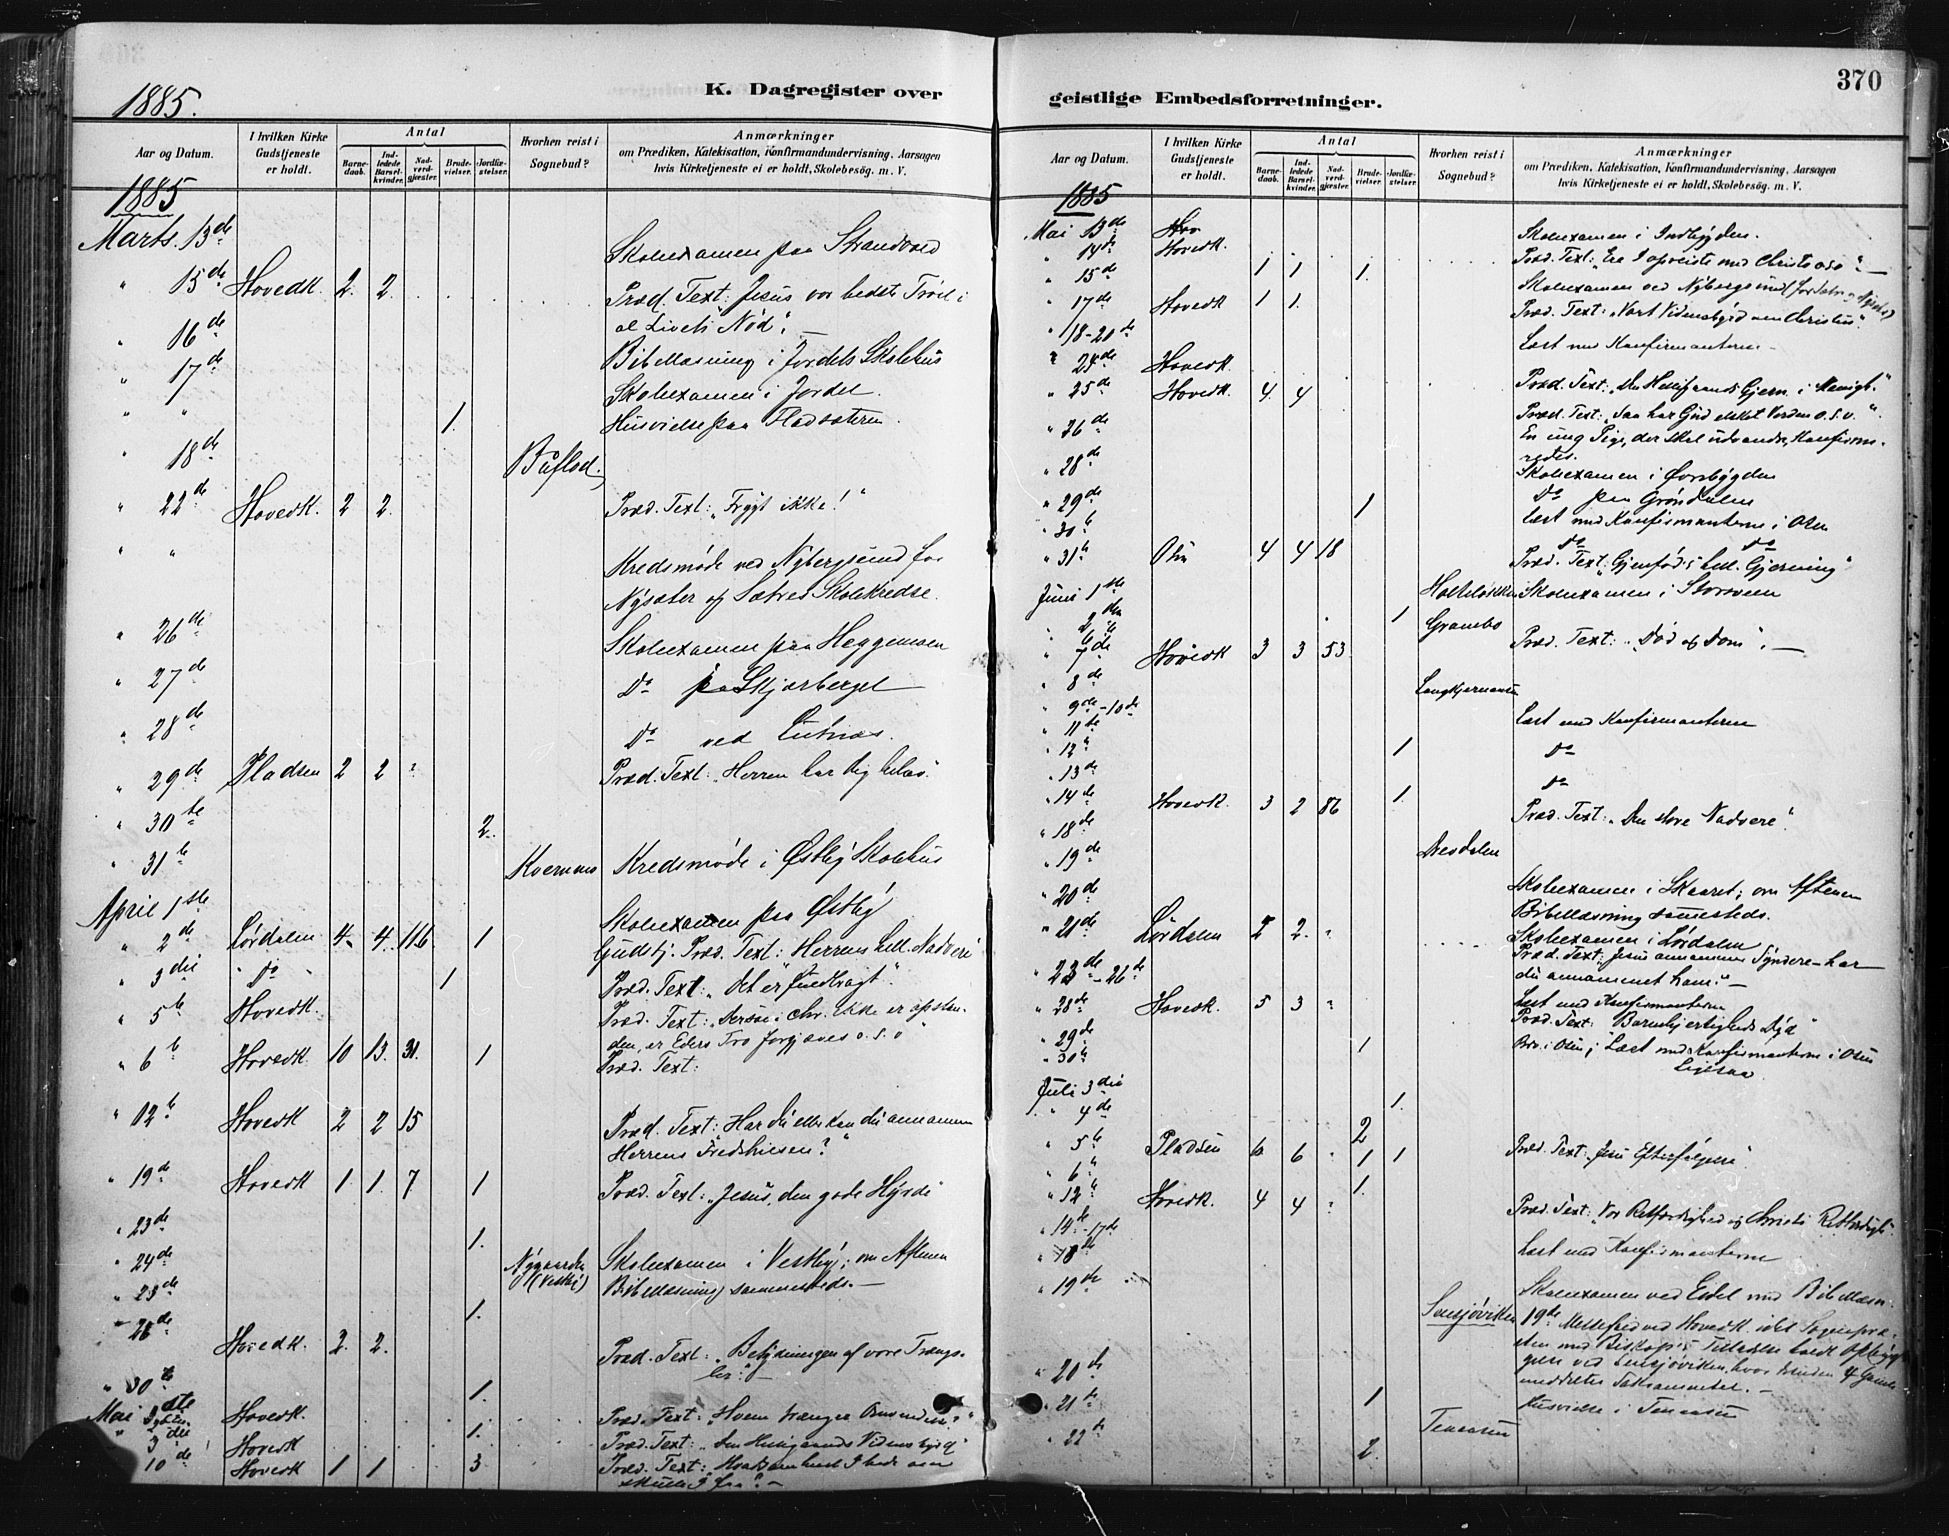 370
1885.
K. Dagregister over
geistlige Embedsforretninger.
Aar og Datum.
I hvilken Kirke Gudstjeneste er holdt.
Antal
Barnedaab.
Indledede Barselkvinder.
Nadverdgjæster.
Brudevielser.
Jordfæstelser.
Hvorhen reist i Sognebud?
Anmærkninger
om Prædiken, Katekisation, Konfirmandundervisning, Aarsagen
hvis Kirketjeneste ei er holdt, Skolebesøg. m. V.
1885
Marts. 13de Skolexamen paa Strandvold
" 15de Hovedk. 2. 2. Præd. Text: Jesus vor bedste Trøst i
al Livets Nød".
" 16de Bibellæsning i Jordets Skolehus
" 17de Skolexamen i Jordet.
" " 1. Husvielse paa Fladsæteren.
" 18de
" 22de Hovedk. 2 2. Præd. Text: "Frygt ikke!"
" " Kredsmøde ved Nybergsund for
Nysæter og Sætres Skolekredse.
" 26de Skolexamen paa Heggemoen
" 27de Do paa Skjærberget
" 28de Do ved Lutnæs.
" 29de Pladsen 2 2 " Præd. Text: "Herren har dig behov."
" 30te 2.
" 31te Kværnnæs Kredsmøde i Østby Skolehus
April 1ste Skolexamen paa Østby
" 2den Lørdalen 4. 4. 116 1 Gudstj. Præd. Text: Herrens hell. Nadvere
" 3die " Do 1 Præd. Text: "Det er fuldbragt".
" 5te Hovedk. Præd. Text: "Dersom Chr. ikke er opstan-
den, er Eders Tro forgjæves o. s. v"
" 6te Hovedk. 10 13. 31. 1 Præd. Text:
" 12te Hovedk 2 2 15 Præd. Text: "Har du eller kan du annamme
Herrens Fredshilsen?"
" 19de Hovedk 1. 1. 7 1 Præd. Text: "Jesus, den gode Hyrde"
" 23de 1.
" 24de Nygaarden (Vestby) Skolexamen i Vestby; om Aftenen
Bibellæsning sammesteds.
" 25de 1.
" 26de Hovedk. 2. 2. Præd. Text: "Betydningen af vore Trængs-
ler".
" 30te 1.
Mai Hovedk. 1. Præd. Text: "Hvem trænger Omvendelse?"
" 3die Hovedk Præd. Text: "Den Helligaands Vidnesbyrd"
10de Hovedk 1 1 3 Præd. Text: "Hvadsomhelst I bede om
skulle I faa".
Aar og Datum.
I hvilken Kirke Gudstjeneste er holdt.
Antal
Barnedaab.
Indledede Barselkvinder.
Nadverdgjæster.
Brudevielser.
Jordfæstelser.
Hvorhen reist i Sognebud?
Anmærkninger
om Prædiken, Katekisation, Konfirmandundervisning, Aarsagen
hvis Kirketjeneste ei er holdt, Skolebesøg. m. V.
1885
Mai 13de Skolexamen i Indbygden.
" 14de Hovedk. Præd. Text: "Ere I opreiste med Christo o s v".
" 15de 1 1 1. Skolexamen ved Nybergsund (for Sætre og Nysæter)
" 17de Hovedk 1 1. Præd. Text: "Vort Vidnesbyrd om Christus".
" 18-20de Læst med Konfirmanterne
" 24de Hovedk. Præd. Text: "Den Helligaands Gjern. i Menigh."
" 25de Hovedk. 4. 4 Præd. Text: "Saa har Gud elsket Verden o. s. v."
" 26de En ung Pige, der skal udvandre, Konfirme-
redes.
" 28de Skolexamen i Øvrebygden
" 29de 1 Do paa Grøndalen
" 30te Læst med Konfirmanterne i Osen
" 31te Osen 4 4 18 Præd. Text: "Gjenfød. s hell. Gjerning"
Juni 1ste Skolexamen i Storveen
" 2den 1 Grambo
" 7de Hovedk 3 3 53 Præd. Text: "Død og Dom".
" 8de
" 9de-10de Læst med Konfirmanterne
" 11te Do
" 12te 1
" 13de Do
" 14de Hovedk. 3 2 86 1. Præd. Text: "Den store Nadvere".
" 18de
" 19de
" 20de Skolexamen i Skaaret; om Aftenen
Bibellæsning sammesteds.
" 21de Lørdalen 2 2. " Skolexamen i Lørdalen
Præd. Text: Jesus annammer Syndere - har
du annammet ham?"
" 23de - 26de Læst med Konfirmanterne
" 28de Hovedk. 5 3 " Præd. Text: "Barmhjertigheds Dyd"
" 29de 1 Brv. i Osen; Læst med Konfirmanterne i Osen
" 30te Ligesaa
Juli 3die 1.
" 4de 2
" 5te Pladsen 6 6 " 1 1 Præd. Text: "Jesu Efterfølgere".
" 6te 1.
" 12te Hovedk. 4 4 " Præd. Text: "Vor Retfærdighed og Christi Retfærdigh."
" 14de-17de Læst med Konfirmanterne
" 18de
" 19de Skolexamen ved Eidet med Bibellæsn.
Sensjøviken 19de Messefald ved Hovedk. idet Sognepræ-
sten med Biskops Tilladelse holdt Opbyg
gelse ved Sensjøviken, hvor desuden 4 Gamle
" 20de meddeltes Sakramentet.
" 21de 1 Husvielse i
" 22de 2